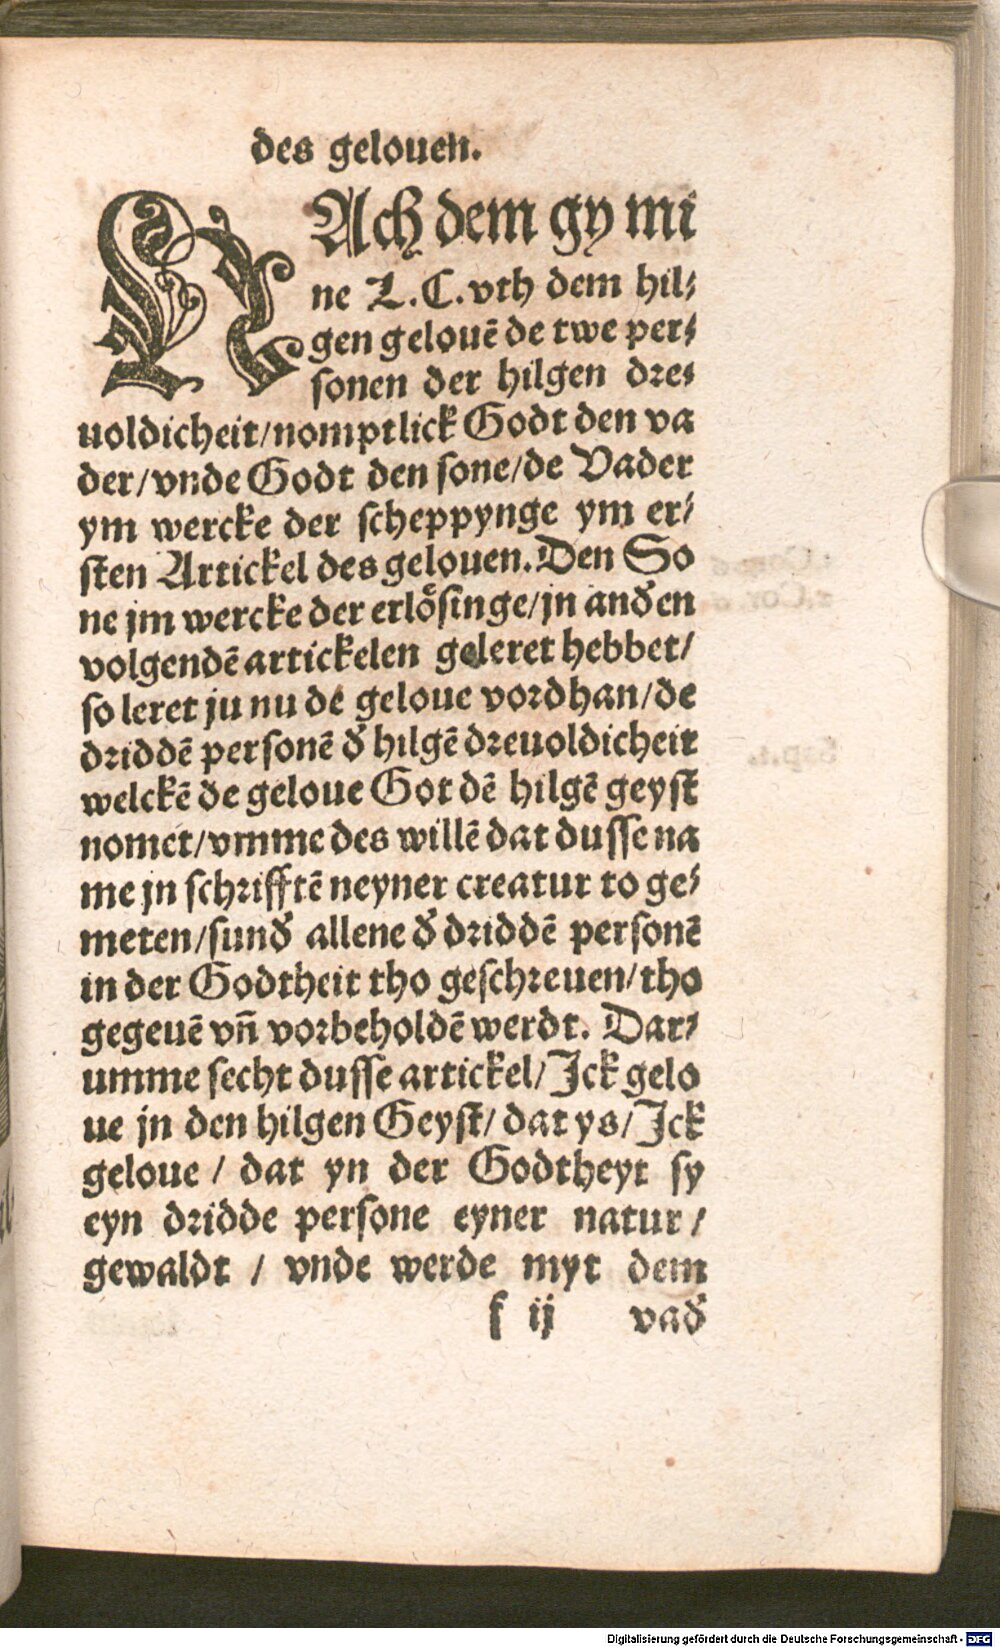 des gelouen.
NAch dem gy mi
ne L.C. vth dem hil⸗
gen gelouē de twe per⸗
sonen der hilgen dre⸗
uoldicheit/nomptlick Godt den va
der/vnde Godt den sone/de Vader
ym wercke der scheppynge ym er⸗
sten Artickel des gelouen. Den So
ne jm wercke der erlöͤsinge/jn anđen
volgendē artickelen geleret hebbet/
so leret ju nu de geloue vordhan/de
driddē personē đ hilgē dreuoldicheit
welckē de geloue Got dē hilgē geyst
nomet/vmme des willē dat dusse na
me jn schrifftē neyner creatur to ge⸗
meten/sunđ allene đ driddē personē
in der Godtheit tho geschreuen/tho
gegeuē vn̄ vorbeholdē werdt. Dar⸗
umme secht dusse artickel/Jck gelo
ue jn den hilgen Geyst/dat ys/Jck
geloue / dat yn der Godtheyt sy
eyn dridde persone eyner natur/
gewaldt / vnde werde myt dem
k ij vađ
Digitalisierung gefördert durch die Deutsche Forschungsgemeinschaft - DFG